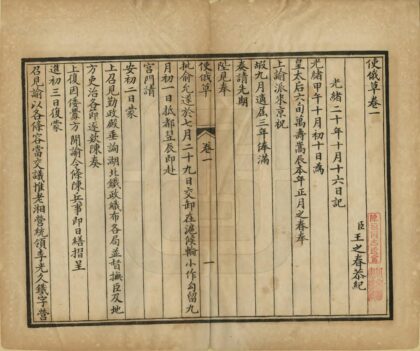 使俄草卷一
臣王之春恭紀
光緒二十年十月十六日記
光緒甲午十月初十日為
皇太后六旬萬壽嵩辰本年正月之春奉
上諭派來京祝
嘏九月適屆三年俸滿
奏請先期
陛見奉
批俞允遂於七月二十九日交卸在滬候輪小作勾留九
月初一日抵都呈辰即赴
宮門請
安初二日蒙
上召見勤政殿垂詢湖北鐵政織布各局並督撫臣及地
方吏治各節逐欵陳奏
上復因倭釁方開諭令條陳兵事即日繕摺呈
進初三日復蒙
召見諭以各條容當交議推老湘營統領李光久鐵字營
使俄草
卷一
一